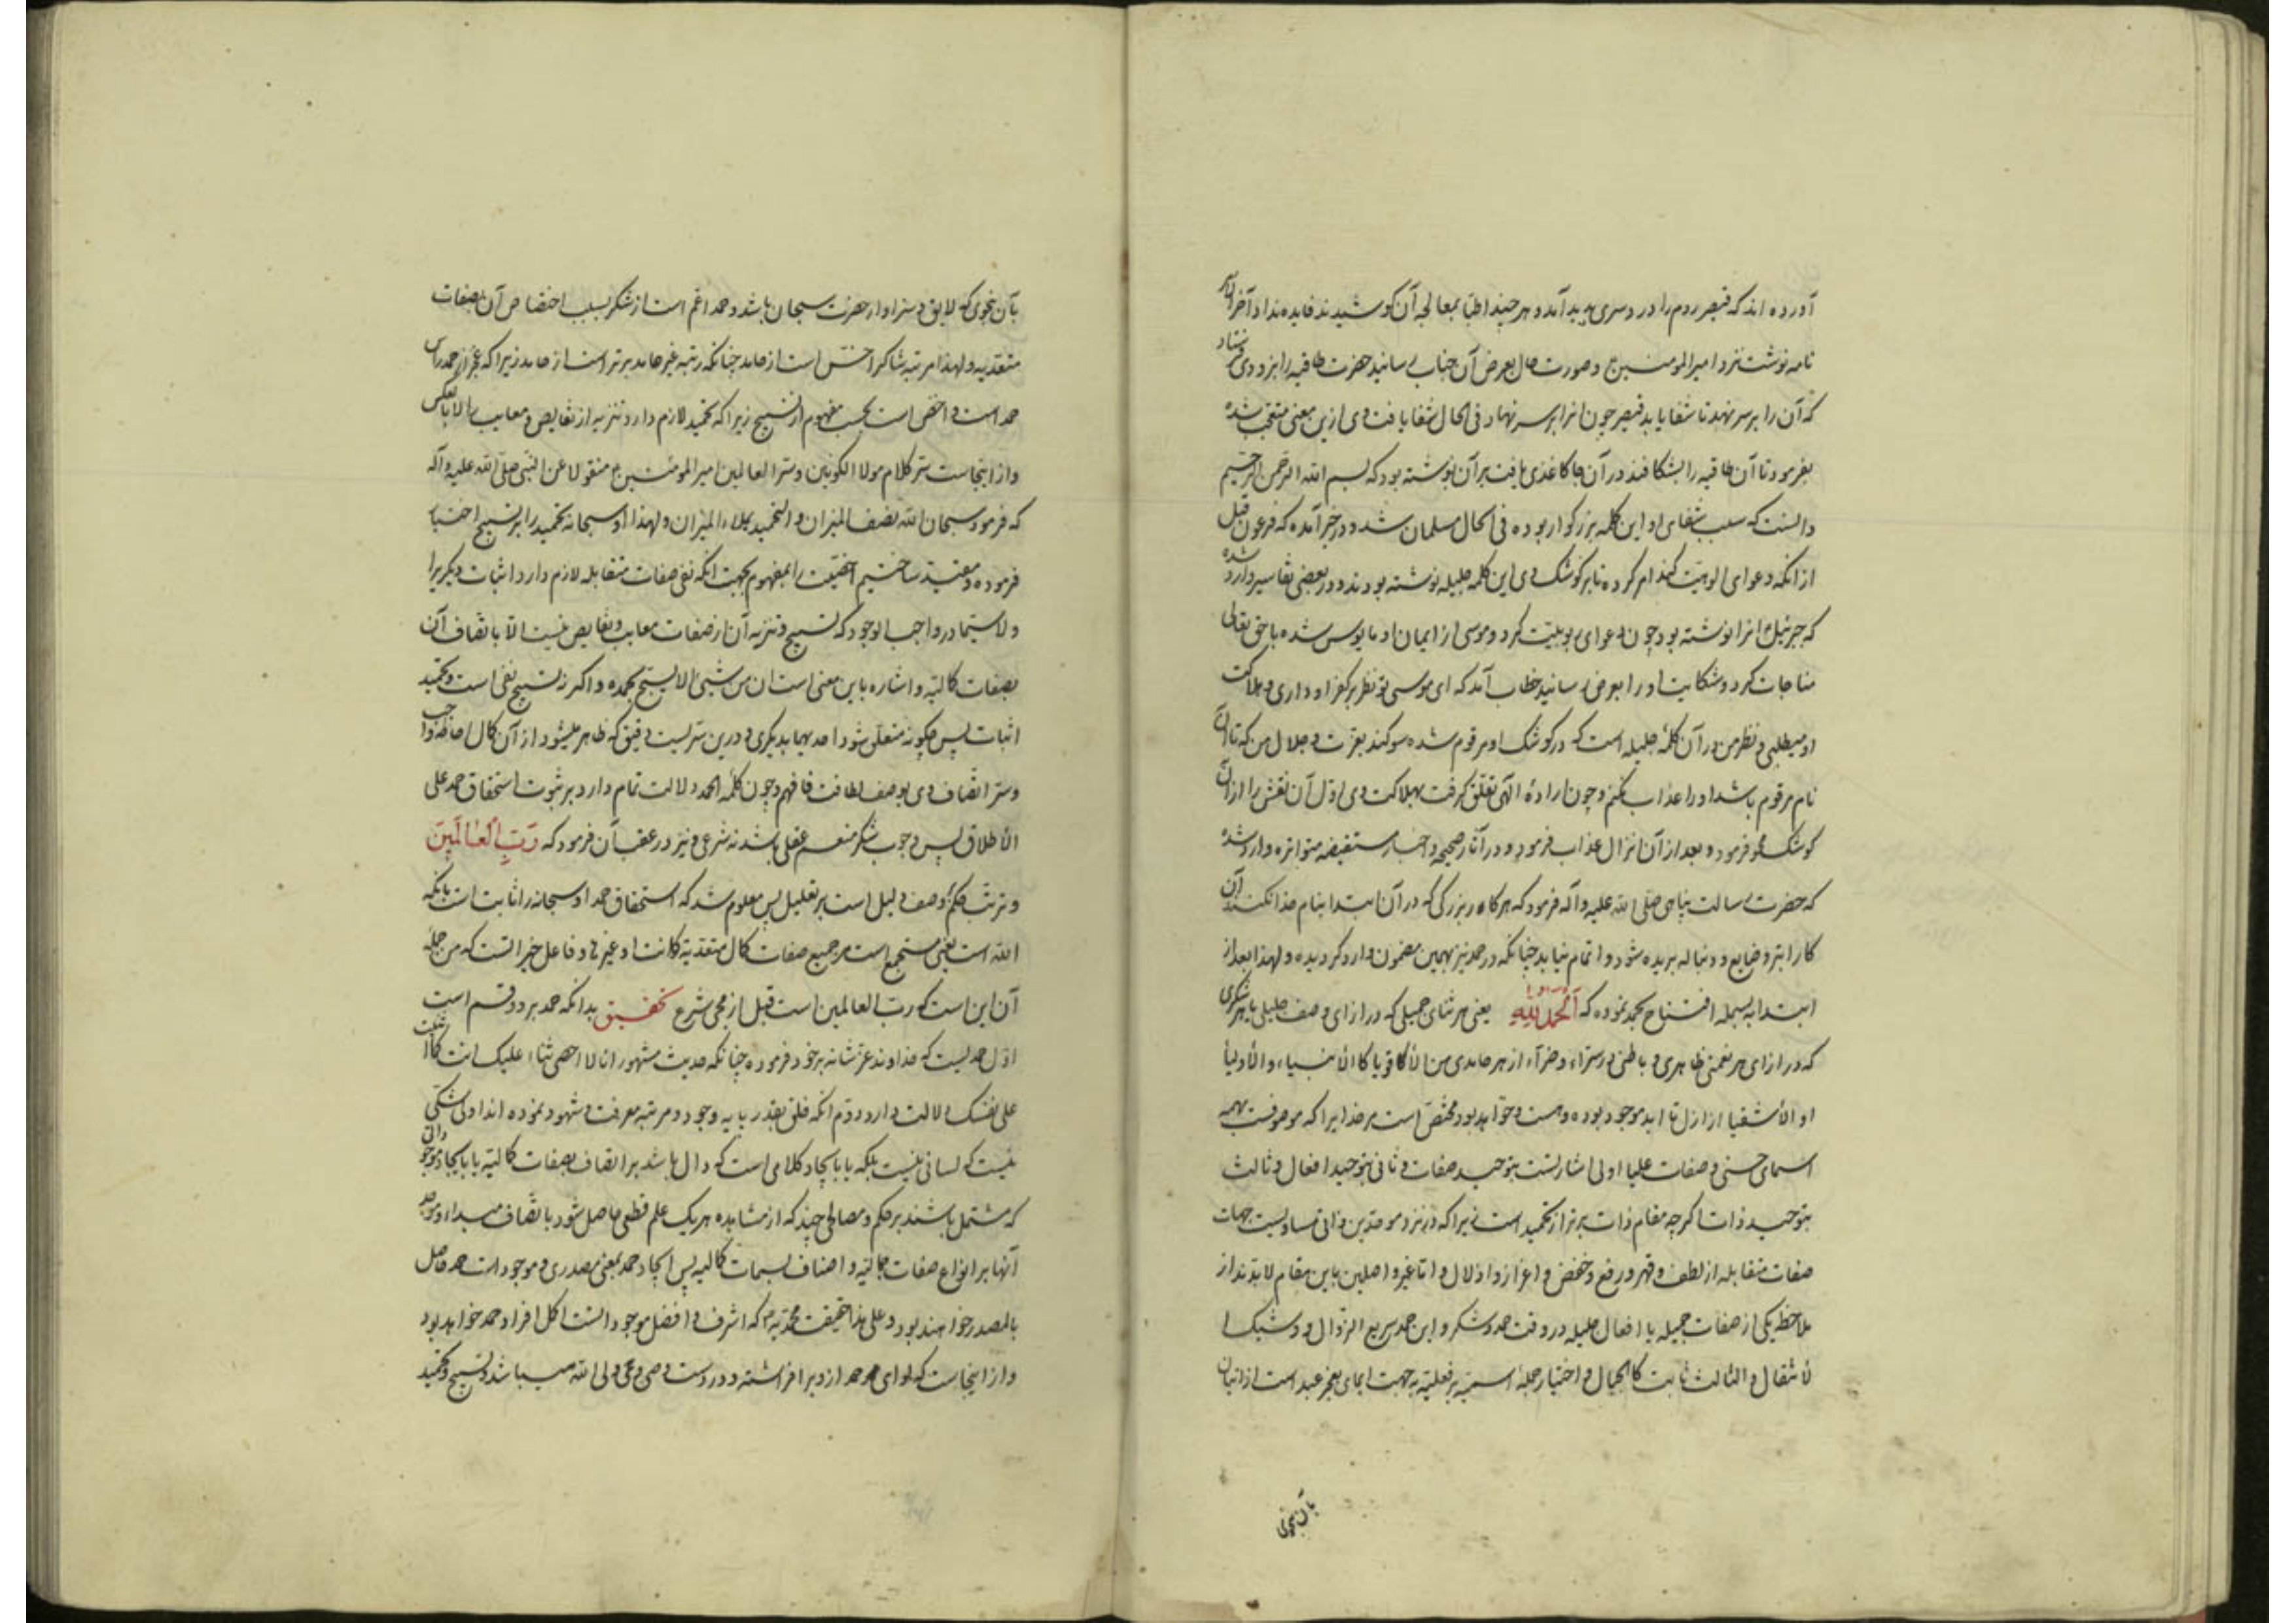 آورده اند که قیصر روم را درد سری پدید آمد و هر چند اطبا بمعالجه آن کوشیدند فایده نداد آخر
نامه نوشت نزد امیرالمومنین و صورت حال بعرض آن جناب رسانید حضرت طاقیه را نزد وی فرستاد
که آن را بر سر نهد تا شفا یابد قیصر چون انرا بر سر نهاد فی الحال شفا یافت وی ازین معنی متعجب شده
بفرمود تا آن طاقیه را بشکافند در آن جا کاغذی یافت بر آن نوشته بود که بسم الله الرحمن الرحیم
دانست که سبب شفای او این کلمه بزرکوار بوده فی الحال مسلمان شد و در خبر آمده که فرعون قبل
از انکه دعوای الوهیت کند امر کرده تا بر کوشک وی این کلمه جلیله نوشته بودند و در بعضی تفاسیر وارد شده
که جبرئیل انرا نوشته بود چون دعوای ربوبیت کرد و موسی از ایمان او مایوس شده با حق تعالی
مناجات کرد و شکایت او را بعرض رسانید خطاب آمد که ای موسی تو نظر بر کفر او داری و هلاکت
او میطلبی و نظر من در آن کلمه جلیله است که در کوشک او مرقوم شده سوکند بعزت و جلال من که تا آن
نام مرقوم باشد او را عذاب نکنم و چون اراده الهی تعلق کرفت بهلاکت وی اول آن نقش را از آن
کوشک محو فرمود و بعد از آن انزال عذاب فرمود و در آثار صحیحه و اخبار مستفیضه متواتره وارد شده
که حضرت رسالت پناهی صلی الله علیه و آله فرمود که هر کار بزرکی که در آن ابتدا بنام خدا نکنند آن
کار ابتر و ضایع و دنباله بریده شود و اتمام نیابد چنانکه در حمد نیز بهمین مضمون وارد کردیده و لهذا بعد از
ابتدا به بسمله افتتاح بحمد نموده که اَلْحَمْدُ لِلّٰهِ یعنی هر ثنای جمیلی که در ازای وصف جلیلی یا هر شکری
که در ازای هر نعمتی ظاهری و باطنی در سراء و ضراء از هر حامدی من الاقویا کالانبیاء و الاولیا
او الاشقیا از ازل تا ابد موجود بوده و هست و خواهد بود مختص است مر خدایرا که موصوفست بهمه
اسمای حسنی و صفات علیا اولی اشارتست بتوحید صفات و ثانی بتوحید افعال و ثالث
بتوحید ذات اکرچه مقام ذات برتر از تحمید است زیرا که در نزد موحدین ذاتی تساویست جهات
صفات متقابله از لطف و قهر و رفع و خفض و اعزاز و اذلال و اما غیر واصلین باین مقام لابدند از
ملاحظه یکی از صفات جمیله یا افعال جلیله در وقت حمد و شکر و این حمد سریع الزوال و وشیک ا
لانتقال و الثالث ثابت کالجبال و اختیار جمله اسمیه بر فعلیه به جهت ایمای بعجز عبد است از اتیان
بآن نحوی
بآن نحوی که لایق و سزاوار حضرت سبحان باشد و حمد اعم است از شکر بسبب اختصاص آن بصفات
متعدیه و لهذا مرتبه شاکر اخس است از حامد چنانکه رتبه غیر حامد برتر است از حامد زیرا که عجز از حمد راس
حمد است و اخص است بحسب مفهوم از تسبیح زیرا که تحمید لازم دارد تنزیه از نقایص و معایب را لا بالعکس
و از اینجاست سر کلام مولا الکونین و سر العالمین امیرالمومنین منقولا عن النبی صلی الله علیه و آله
که فرمود سبحان الله نصف المیزان و التحمید یملاء المیزان و لهذا او سبحانه تحمید را بر تسبیح اختیا
فرموده و مقید ساختیم اخصیت را بمفهوم بجهت انکه نفی صفات متقابله لازم دارد اثبات دیکریرا
و لا سیما در واجب الوجود که تسبیح و تنزیه آن از صفات معایب و نقایص نیست الا باتصاف آن
بصفات کمالیه و اشاره باین معنی است ان من شیئ الا یسبح بحمده و اکر نه تسبیح نفی است و تحمید
اثبات پس چکونه متعلق شود احدیهما بدیکری و درین سریست دقیق که ظاهر میشود از آن کمال احاطه واجب
و سر اتصاف وی بوصف لطافت فافهم و چون کلمه الحمد دلالت تمام دارد بر ثبوت استحقاق حمد علی
الاطلاق پس وجوب شکر منعم عقلی باشد نه شرعی و نیز در عقب آن فرمود که رَبِّ الْعٰالَمٖینَ
و ترتب حکم وصف دلیل است بر تعلیل پس معلوم شد که استحقاق حمد او سبحانه را ثابت است بانکه
الله است یعنی مستجمع است مر جمیع صفات کمال متعدیة کانت او غیرها و فاعل خیراتست که من جمله
آن این است که رب العالمین است قبل از مجی شرع تحقیق بدانکه حمد بر دو قسم است
اول حمدیست که خداوند عز شانه بر خود فرموده چنانکه حدیث مشهور انا لا احصی ثناء علیک انت کما اثنیت
علی نفسک دلالت دارد دوم انکه خلق بقدر پایه وجود و مرتبه معرفت و شهود نموده اند اولی شکی
نیست که لسانی نیست بلکه یا بایجاد کلامی است که دال باشد بر اتصاف بصفات کمالیه یا بایجاد موجوداتی
که مشتمل باشند بر حکم و مصالحی چند که از مشاهده هر یک علم قطعی حاصل شود باتصاف مبداء و موجد
آنها بر انواع صفات جمالیه و اصناف سمات کمالیه پس ایجاد حمد بمعنی مصدری و موجودات حمد حاصل
بالمصدر خواهند بود و علی هذا حقیقت محمدیه که اشرف و افضل موجوداتست اکمل افراد حمد خواهد بود
و از اینجاست که لوای حمد از و برافراشته و در دست وصی وی ولی الله میباشد و تسبیح و تحمید